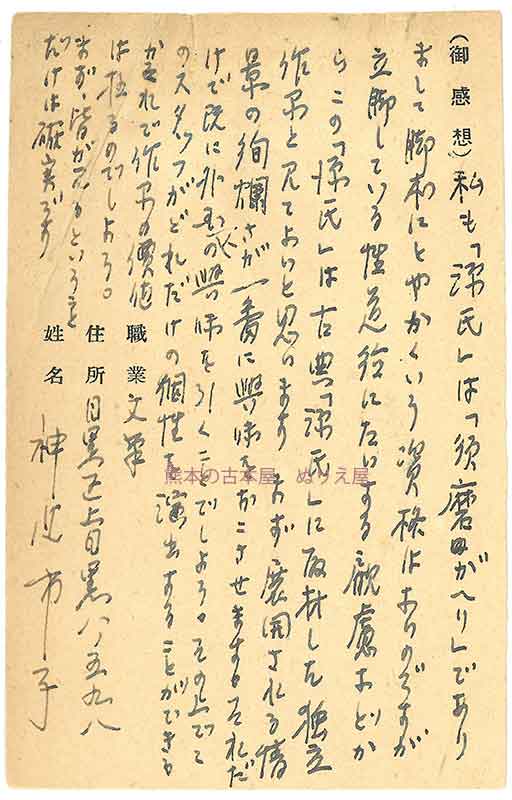 (御感想)私も「源氏」は「須磨源氏がへり」であり
まして脚本にとやかくいう資格はないのですが
立脚している性道徳にたいする顧慮などか
らこの「源氏」は古典「源氏」に取材した独立
作品と見てよいと思います まず展開される情
景の絢爛さが一番に興味をおこさせます。それだ
けで既に外国の興味を引くことでしょう。その上で
のスタッフがどれだけの個性を演出することができる
かそれで作品の價値
は極るのでしょう。
まず、皆が見るということ
だけは確実です
職業 文筆
住所 目黒区上目黒八ノ五九八
姓名 神近市子
熊本の古本屋 ぬりえ屋